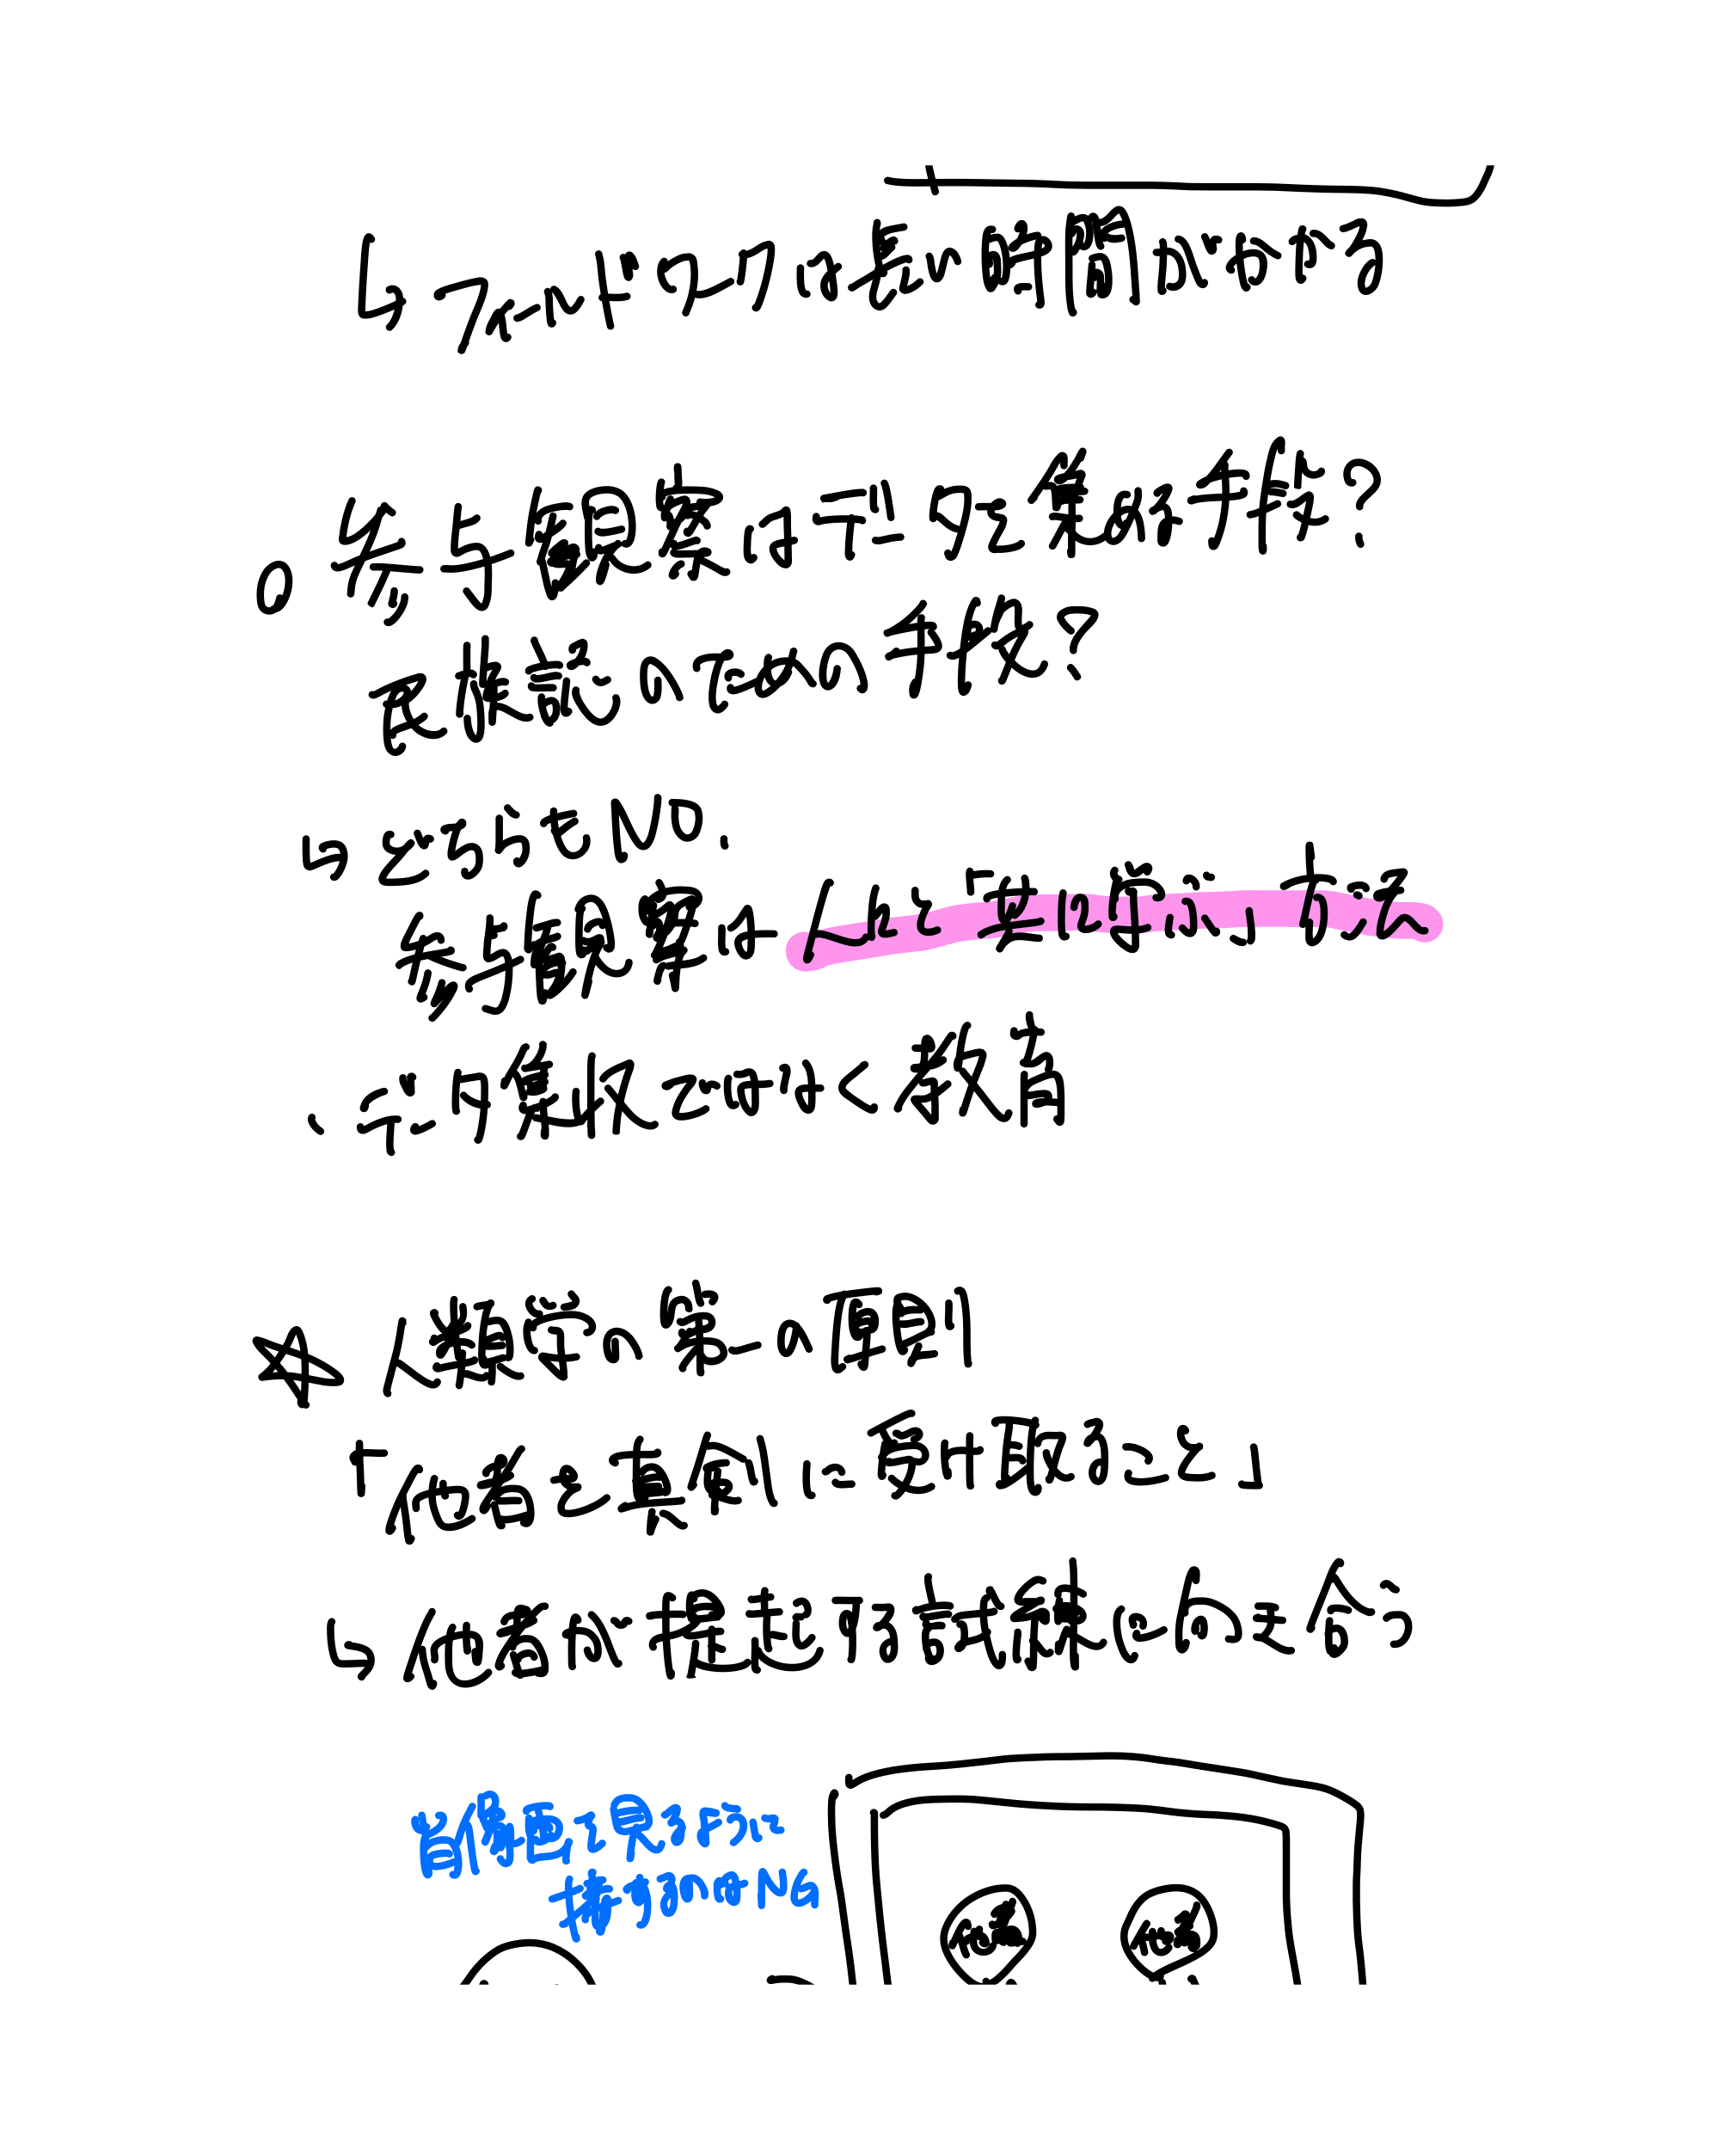 ↳ フィールドワークは長い時間がかかる
○ 参与観察はデータを集める手段?
民族誌のための手段?
↳ どちらもNO.
参与観察は人々と「共に学ぶ」方法
∴ データ集収ではなく教育
☆ 人類学の第一の原則
「他者を真剣に受け取ること」
↳ 他者が提起する試練に向き合う
首飾固を見るように
接するのはNG
他者 他者